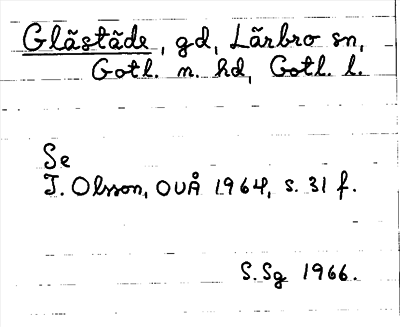 Glästäde, gd, Lärbro sn,
Gotl. n. hd, Gotl. l.
Se
I. Olsson, OUÅ 1964, s. 31 f.
S.Sg 1966.